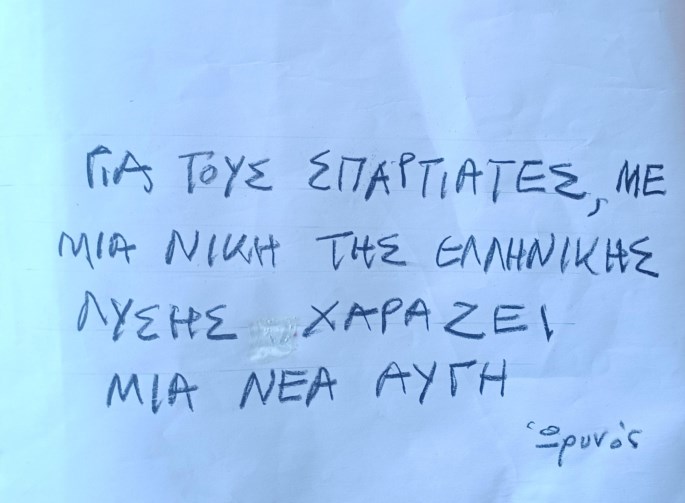 ΓΙΑ ΤΟΥΣ ΣΠΑΡΤΙΑΤΕΣ, ΜΕ
ΜΙΑ ΝΙΚΗ ΤΗΣ ΕΛΛΗΝΙΚΗΣ
ΛΥΣΗΣ ΧΑΡΑΖΕΙ
ΜΙΑ ΝΕΑ ΑΥΓΗ